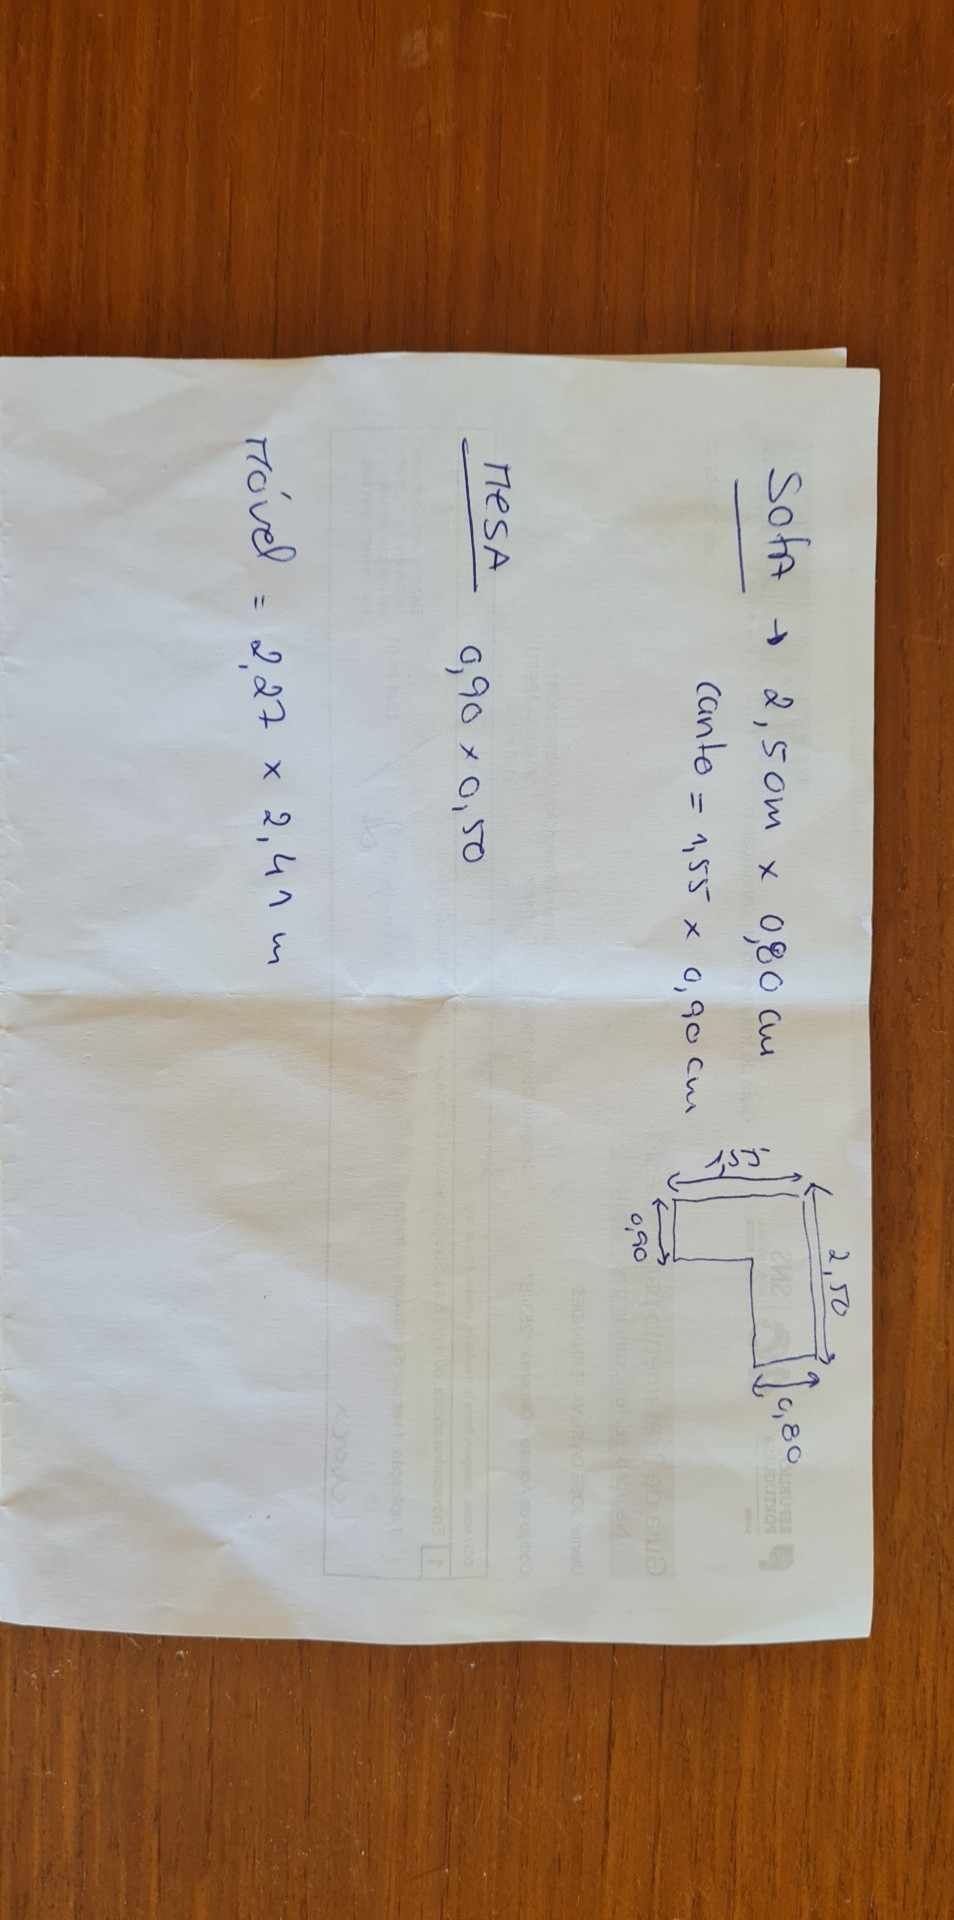 Sofá → 2,50m x 0,80 cm
canto = 1,55 x 0,90 cm
2,50
0,80
1,55
0,90
MESA 0,90 x 0,50
Móvel = 2,27 x 2,41 m